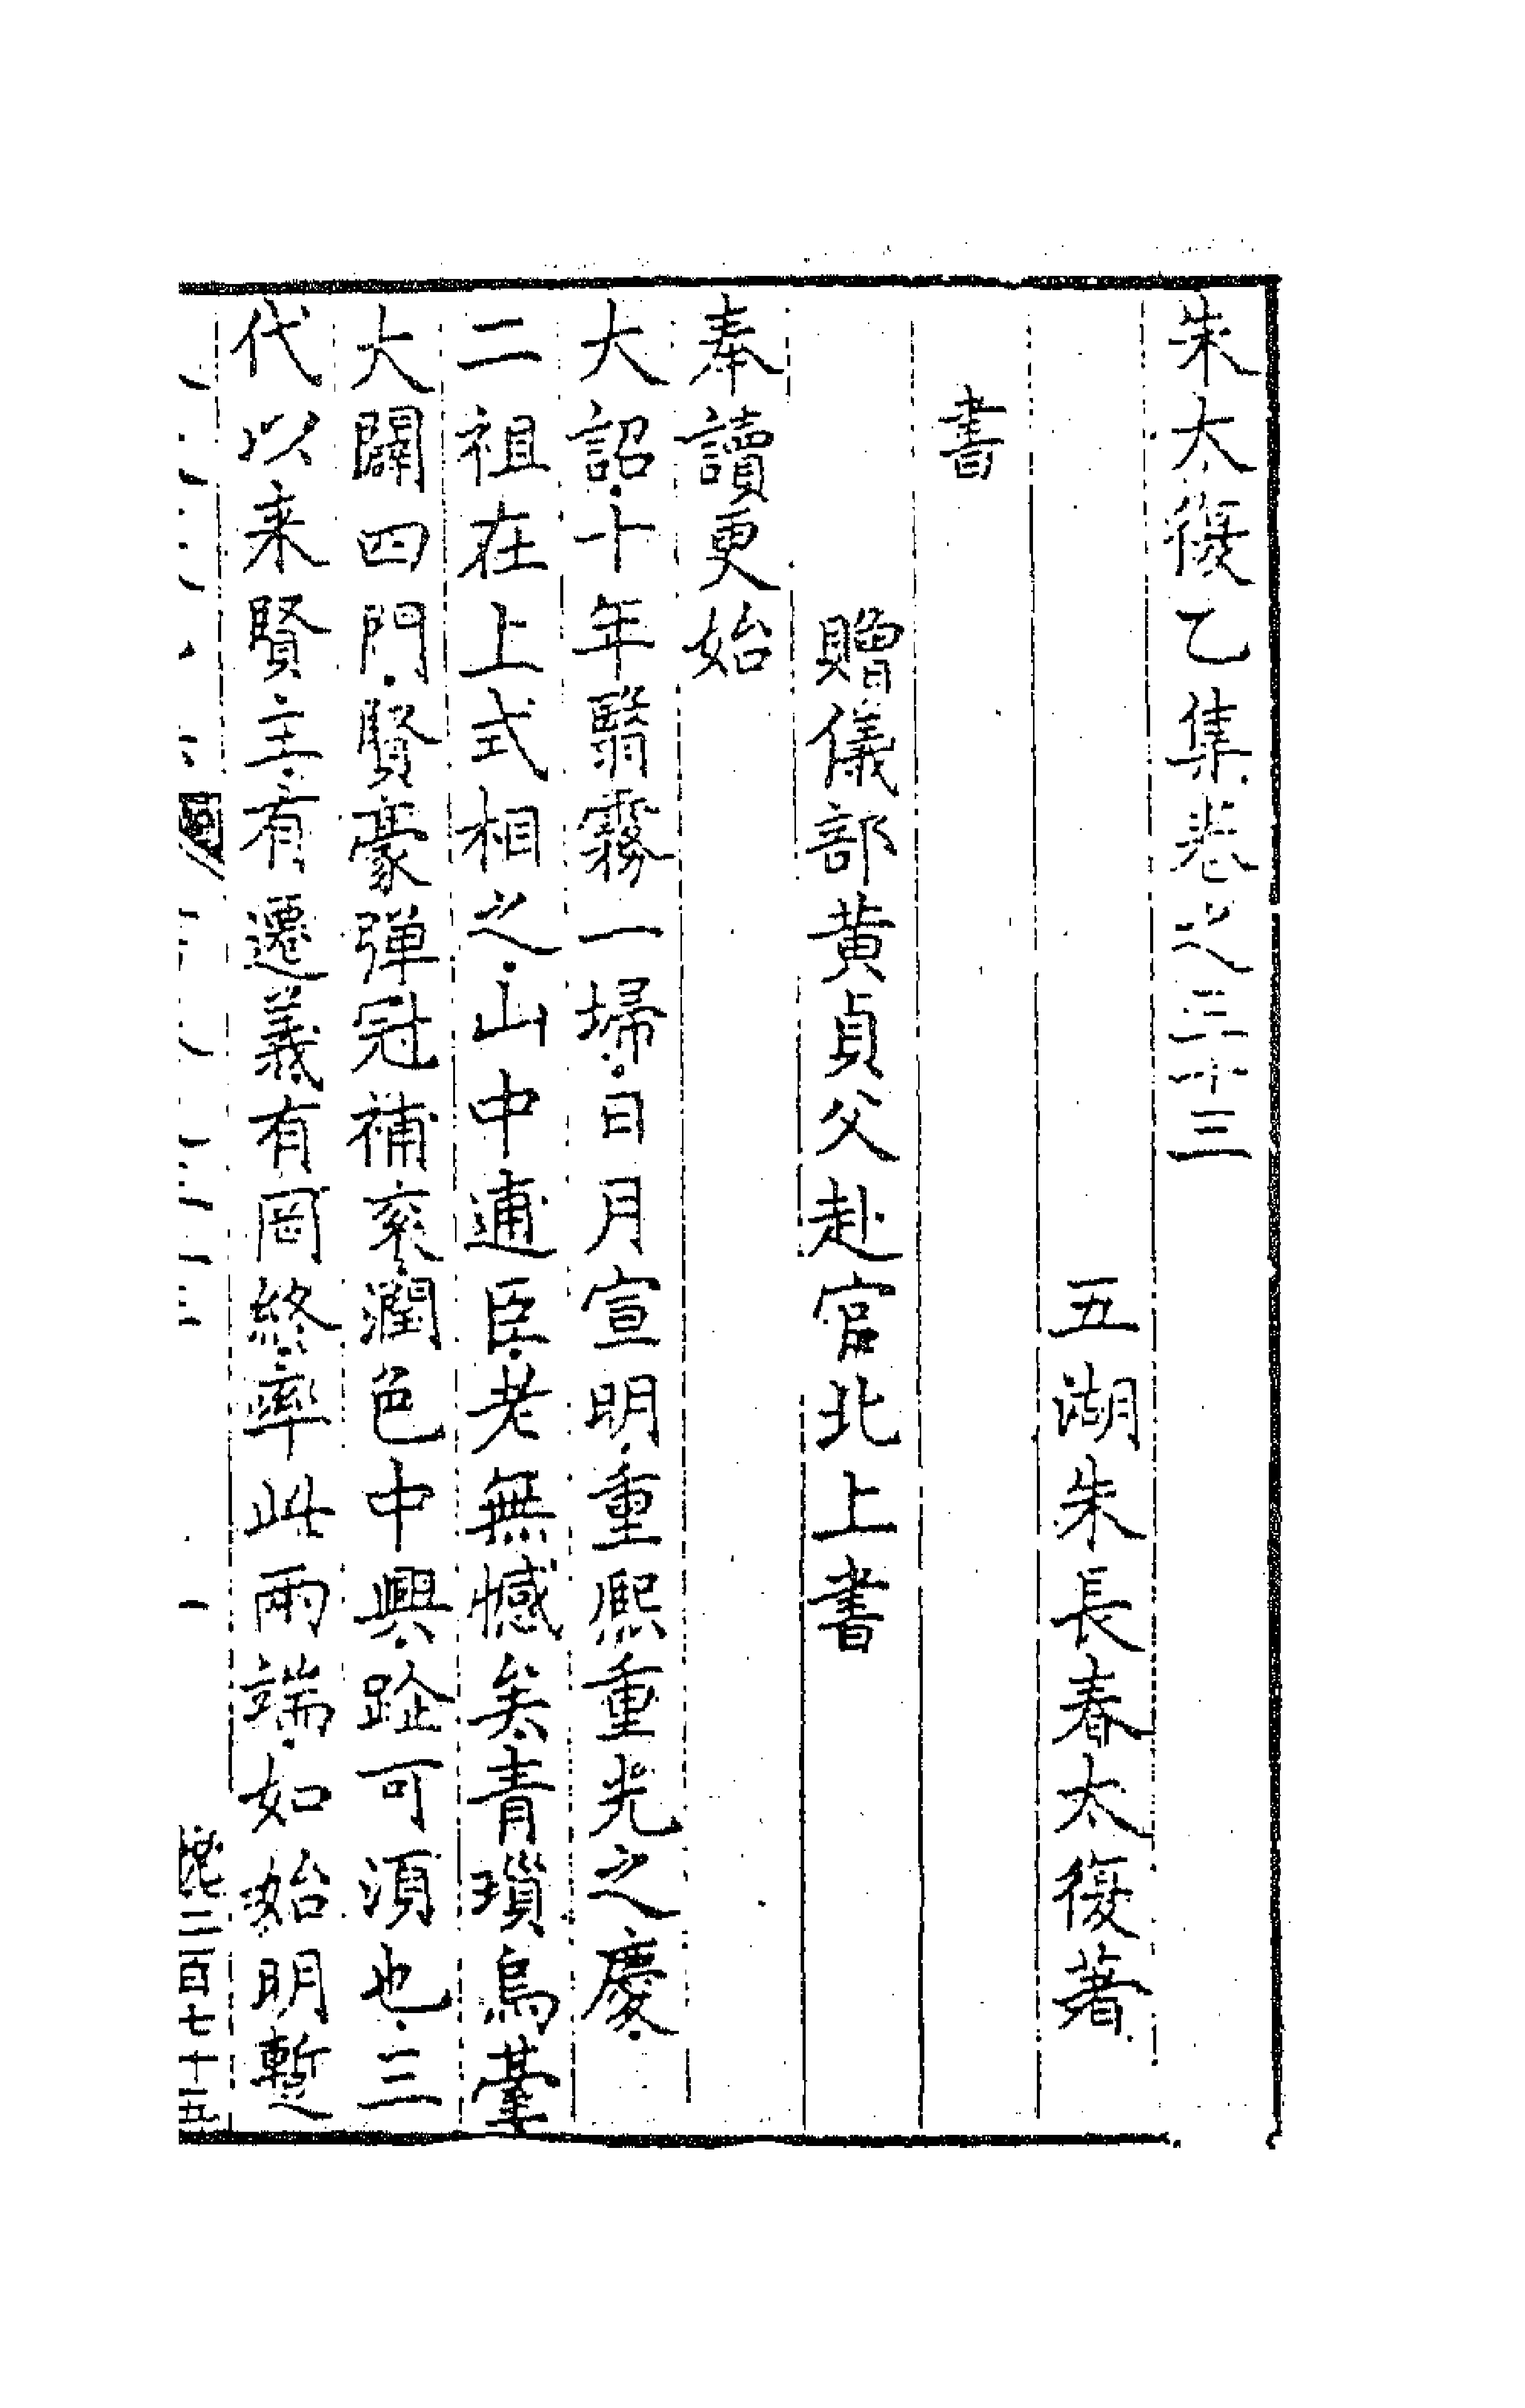 朱太復乙集卷之三十三
五湖朱長春太復著
書
贈儀部黄貞父赴官北上書
奉讀更始
大詔十年翳霧一掃日月宣明重熙重光之慶
二祖在上式相之山中逋臣老無憾矣青瑣烏臺
大闢四門賢豪彈冠補衮潤色中興趾可須也三
代以来賢主有遷義有罔終率此兩端如始明暫
二百七十五